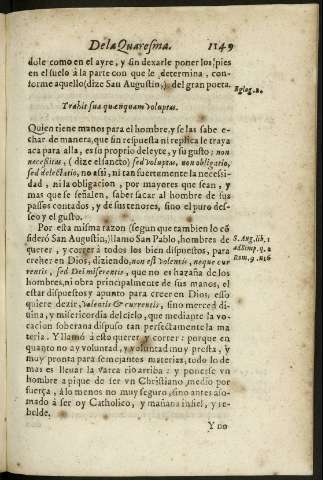 De la Quaresma. 1149
dole como en el ayre, y sin dexarle poner los pies
en el suelo à la parte con que le determina, con-
forme aquello (dize San Augustin,) del gran poeta.
Eglog. 2.
Trahit sua quenquam voluptas.
Quien tiene manos para el hombre, y se las sabe e-
char de manera, que sin respuesta ni replica le traya
aca para alla, es su proprio deleyte, y su gusto: non
necessitas, (dize el sancto) sed voluptas, non obligatio,
sed delectatio, no assi, ni tan fuertemente la necessi-
dad, ni la obligacion, por mayores que sean, y
mas que se señalen, saber sacar al hombre de sus
passos contados, y de sus tenores, sino el puro des-
seo y el gusto.
Por esta misma razon (segun que tambien lo cō
sideró San Augustin,) llamo San Pablo, hombres de
S. Aug. lib. 1
querer, y correr à todos los bien dispuestos, para
ad Simp. q. 2
creher en Dios, diziendo, non est volentis, neque cur
Rom. 9. n. 16
rentis, sed Dei miserentis, que no es hazaña de los
hombres, ni obra principalmente de sus manos, el
estar dispuestos y apunto para creer en Dios, esso
quiere dezir, Volentis & currentis, sino merced di-
uina, y misericordia del cielo, que mediante la vo-
cacion soberana dispuso tan perfectamente la ma
teria. Y llamó à esto querer y correr: porque en
quanto no ay voluntad, y voluntad muy presta, y
muy pronta para semejantes materias, todo lo de
mas es lleuar la varca rio arriba: y ponerse vn
hombre a pique de ser vn Christiano, medio por
fuerça, álo menos no muy seguro, sino antes aso-
mado à ser oy Catholico, y mañana infiel, y re-
belde.
Y no